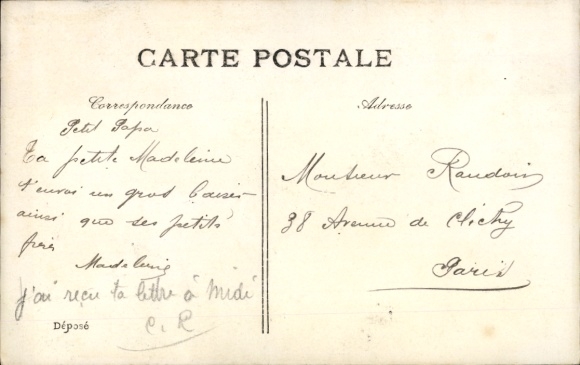 CARTE POSTALE
Correspondance
Adresse
Petit Papa
Ta petite Madeleine
t'envoi un gros baiser
ainsi que ses petits
frères
Madeleine
J'ai reçu ta lettre à midi
C. R
Déposé
Monsieur Raudoin
38 Avenue de Clichy
Paris